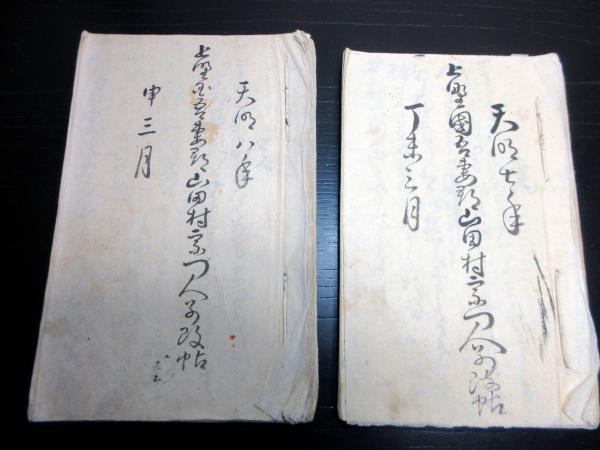 天明七年
上野國吾妻郡山田村宗門人別改帖
丁未三月
天明八年
上野国吾妻郡山田村宗門人別改帖
申三月